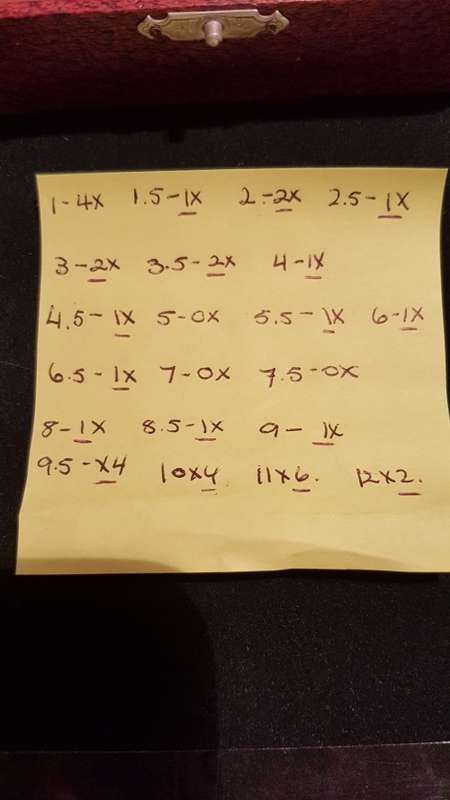 1-4X 1.5-1X 2-2X 2.5-1X
3-2X 3.5-2X 4-1X
4.5-1X 5-0X 5.5-1X 6-1X
6.5-1X 7-0X 7.5-0X
8-1X 8.5-1X 9-1X
9.5-X4 10X4 11X6. 12X2.